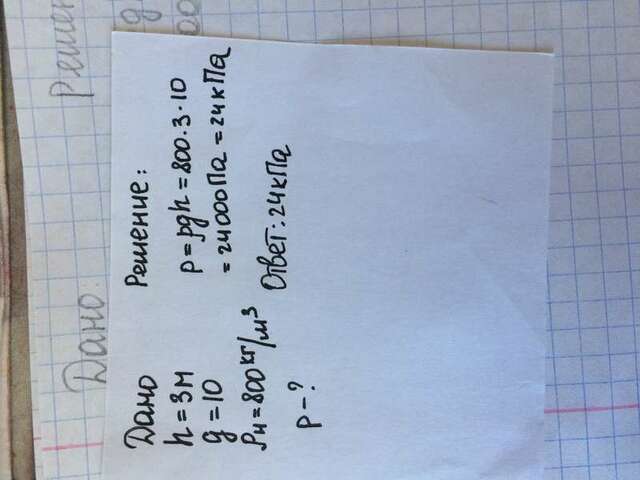 Дано
Решен
Дано
h = 3м
g = 10
ρн = 800 кг/м³
p - ?
Решение:
p = ρgh = 800 · 3 · 10
= 24 000 Па = 24 кПа
Ответ: 24 кПа